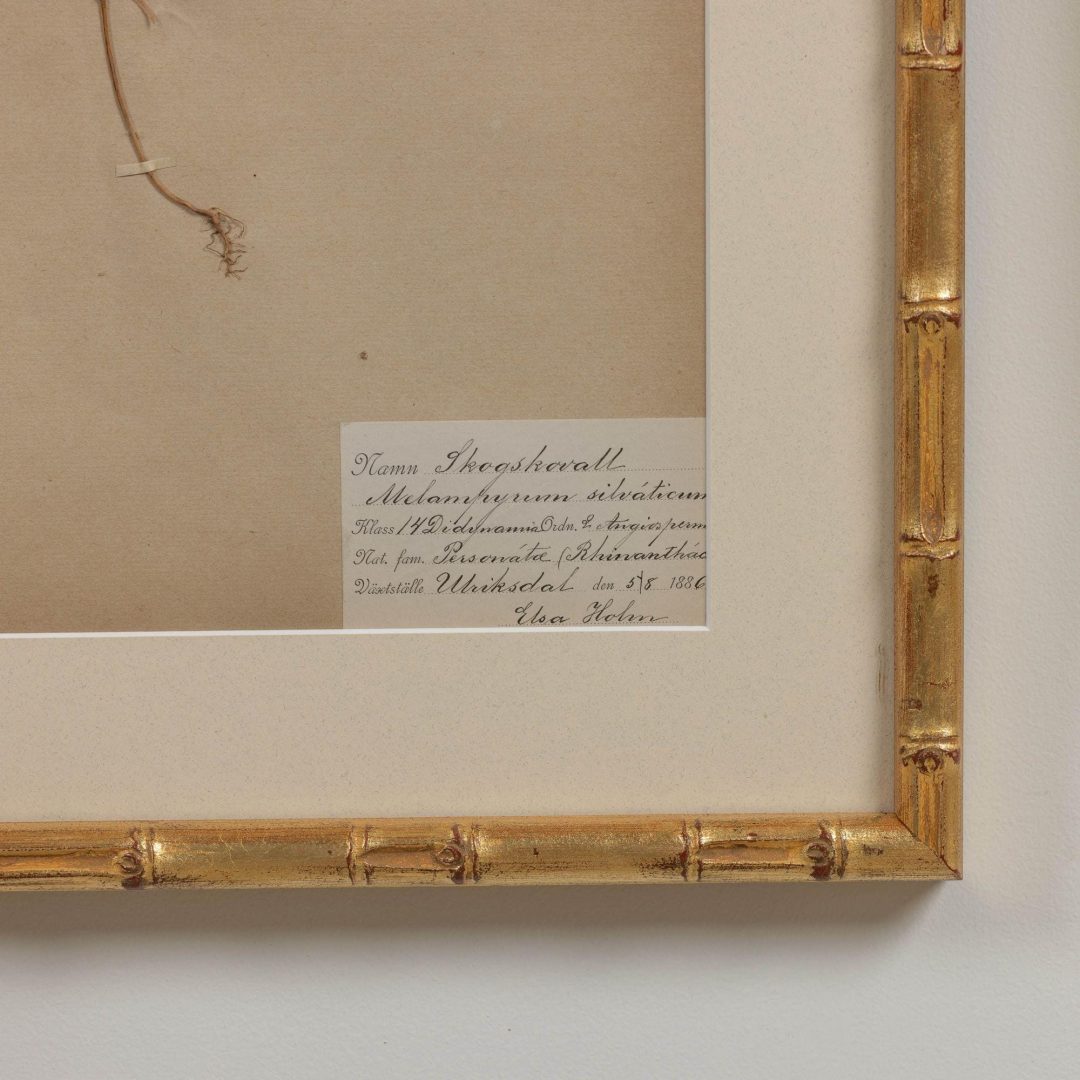 Namn Skogskovall
Melampyrum silváticum
Klass 14 Didynamia Ordn. 2 Angiosperm
Nat. fam. Personátæ (Rhinanthác
Växtställe Ulriksdal den 5/8 1886
Elsa Holm